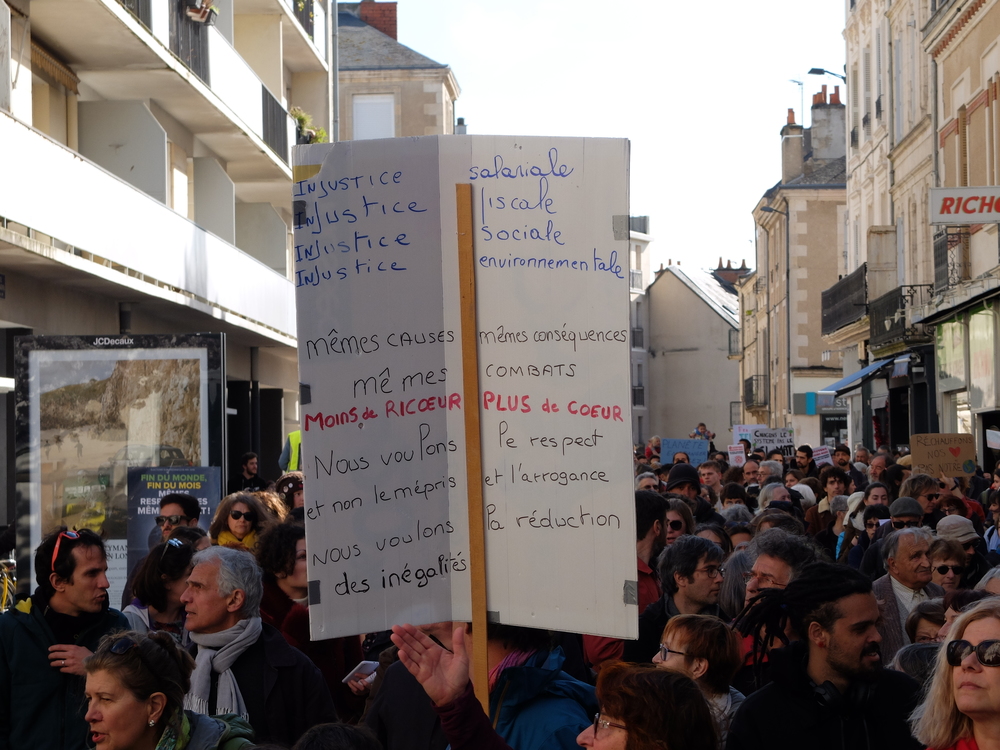 INJUSTICE salariale
INJUSTICE fiscale
INJUSTICE sociale
INJUSTICE environnementale
mêmes CAUSES mêmes conséquences
mêmes COMBATS
MOINS de RICOEUR PLUS de COEUR
Nous voulons le respect
et non le mépris et l'arrogance
Nous voulons la réduction
des inégalités
JCDecaux
FIN DU MONDE,
FIN DU MOIS
RICHO
RECHAUFFONS
NOS